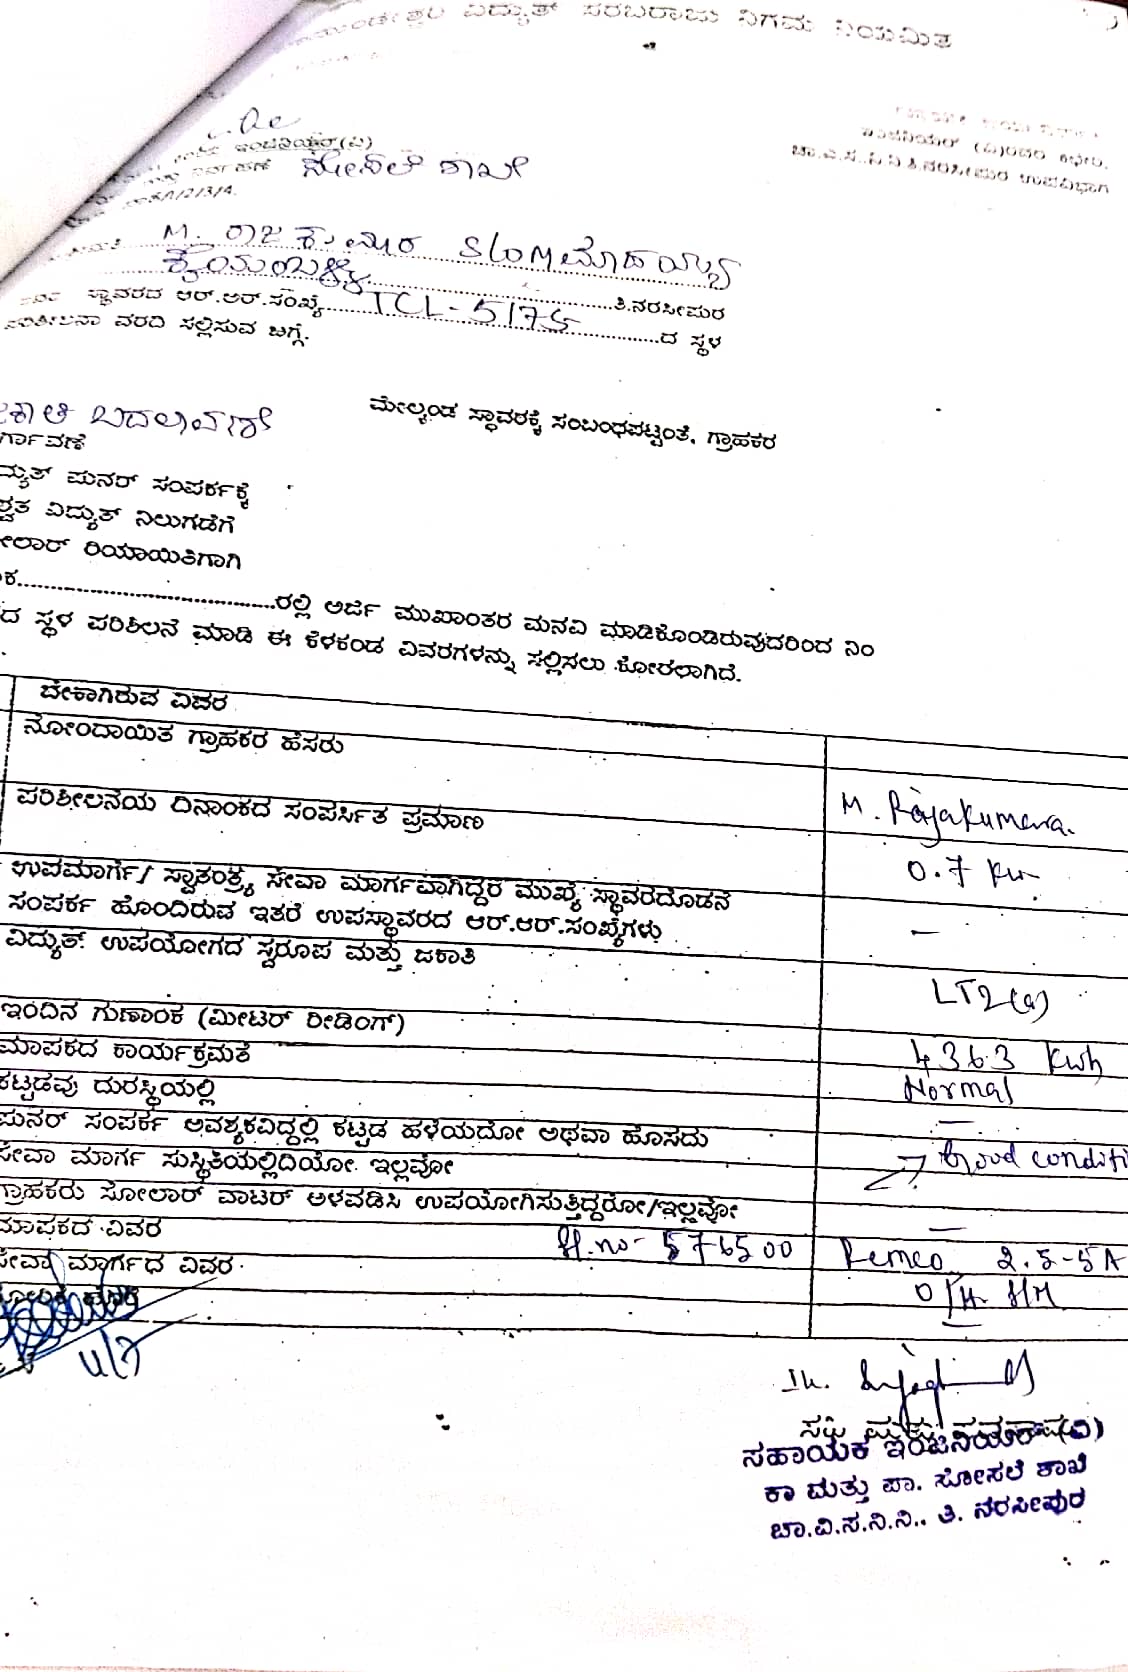 ವಿದ್ಯುತ್ ಸರಬರಾಜು ನಿಗಮ ನಿಯಮಿತ
ಇಂಜಿನಿಯರ್(ವಿ)
ಚಾ.ವಿ.ಸ.ನಿ.ನಿ ತಿ.ನರಸೀಪುರ ಉಪವಿಭಾಗ
M. ರಾಜಕುಮಾರ S/o
ತಿ.ನರಸೀಪುರ
ಸ್ಥಾವರದ ಆರ್.ಆರ್.ಸಂಖ್ಯೆ TCL-5175 ದ ಸ್ಥಳ
ವರದಿ ಸಲ್ಲಿಸುವ ಬಗ್ಗೆ.
ಮೇಲ್ಕಂಡ ಸ್ಥಾವರಕ್ಕೆ ಸಂಬಂಧಪಟ್ಟಂತೆ, ಗ್ರಾಹಕರ
ಬದಲಾವಣೆ
ರ್ಗಾವಣೆ
ದ್ಯುತ್ ಪುನರ್ ಸಂಪರ್ಕಕ್ಕೆ
ಶ್ವತ ವಿದ್ಯುತ್ ನಿಲುಗಡೆಗೆ
ೋಲಾರ್ ರಿಯಾಯಿತಿಗಾಗಿ
ಕ....................ರಲ್ಲಿ ಅರ್ಜಿ ಮುಖಾಂತರ ಮನವಿ ಮಾಡಿಕೊಂಡಿರುವುದರಿಂದ ನಿಂ
ದ ಸ್ಥಳ ಪರಿಶೀಲನೆ ಮಾಡಿ ಈ ಕೆಳಕಂಡ ವಿವರಗಳನ್ನು ಸಲ್ಲಿಸಲು ಕೋರಲಾಗಿದೆ.
ಬೇಕಾಗಿರುವ ವಿವರ
ನೋಂದಾಯಿತ ಗ್ರಾಹಕರ ಹೆಸರು M. Rajakumara.
ಪರಿಶೀಲನೆಯ ದಿನಾಂಕದ ಸಂಪರ್ಸಿತ ಪ್ರಮಾಣ 0.7 Kw
ಉಪಮಾರ್ಗ/ ಸ್ವಾತಂತ್ರ್ಯ ಸೇವಾ ಮಾರ್ಗವಾಗಿದ್ದರೆ ಮುಖ್ಯ ಸ್ಥಾವರದೊಡನೆ
ಸಂಪರ್ಕ ಹೊಂದಿರುವ ಇತರೆ ಉಪಸ್ಥಾವರದ ಆರ್.ಆರ್.ಸಂಖ್ಯೆಗಳು –
ವಿದ್ಯುತ್ ಉಪಯೋಗದ ಸ್ವರೂಪ ಮತ್ತು ಜಕಾತಿ LT2(a)
ಇಂದಿನ ಗುಣಾಂಕ (ಮೀಟರ್ ರೀಡಿಂಗ್) 4363 Kwh
ಮಾಪಕದ ಕಾರ್ಯಕ್ರಮತೆ Normal
ಕಟ್ಟಡವು ದುರಸ್ಥಿಯಲ್ಲಿ –
ಪುನರ್ ಸಂಪರ್ಕ ಅವಶ್ಯಕವಿದ್ದಲ್ಲಿ ಕಟ್ಟಡ ಹಳೆಯದೋ ಅಥವಾ ಹೊಸದು
ಸೇವಾ ಮಾರ್ಗ ಸುಸ್ಥಿತಿಯಲ್ಲಿದಿಯೋ ಇಲ್ಲವೋ Good conditi
ಗ್ರಾಹಕರು ಸೋಲಾರ್ ವಾಟರ್ ಅಳವಡಿಸಿ ಉಪಯೋಗಿಸುತ್ತಿದ್ದರೋ/ಇಲ್ಲವೋ –
ಮಾಪಕದ ವಿವರ Sl.no- 576500 Remco 2.5-5A
ಸೇವಾ ಮಾರ್ಗದ ವಿವರ O/H
4/7
ಸಹಾಯಕ ಇಂಜಿನಿಯರ್ (ವಿ)
ಕಾ ಮತ್ತು ಪಾ. ಸೋಸಲೆ ಶಾಖೆ
ಚಾ.ವಿ.ಸ.ನಿ.ನಿ., ತಿ. ನರಸೀಪುರ